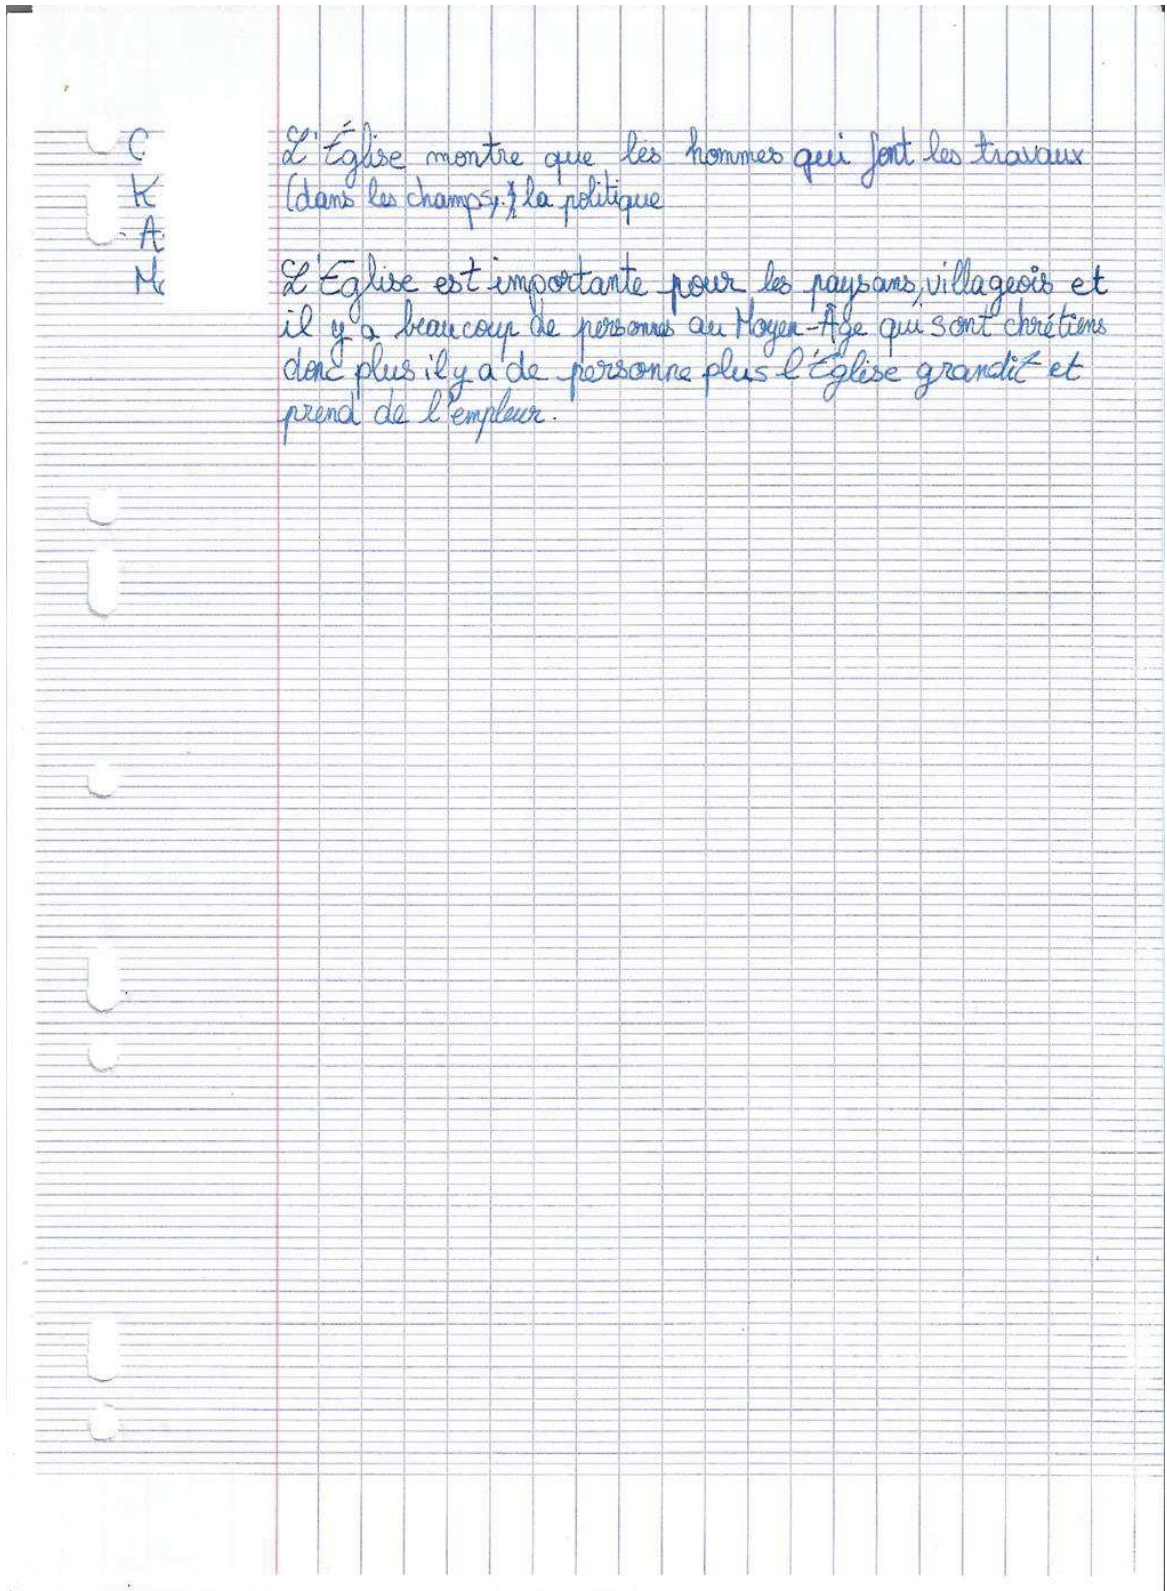 C
K
A
M
L'Église montre que les hommes qui font les travaux
(dans les champs, la politique
L'Église est importante pour les paysans, villageois et
il y a beaucoup de personnes au Moyen-Âge qui sont chrétiens
donc plus il y a de personne plus l'Église grandit et
prend de l'empleur.